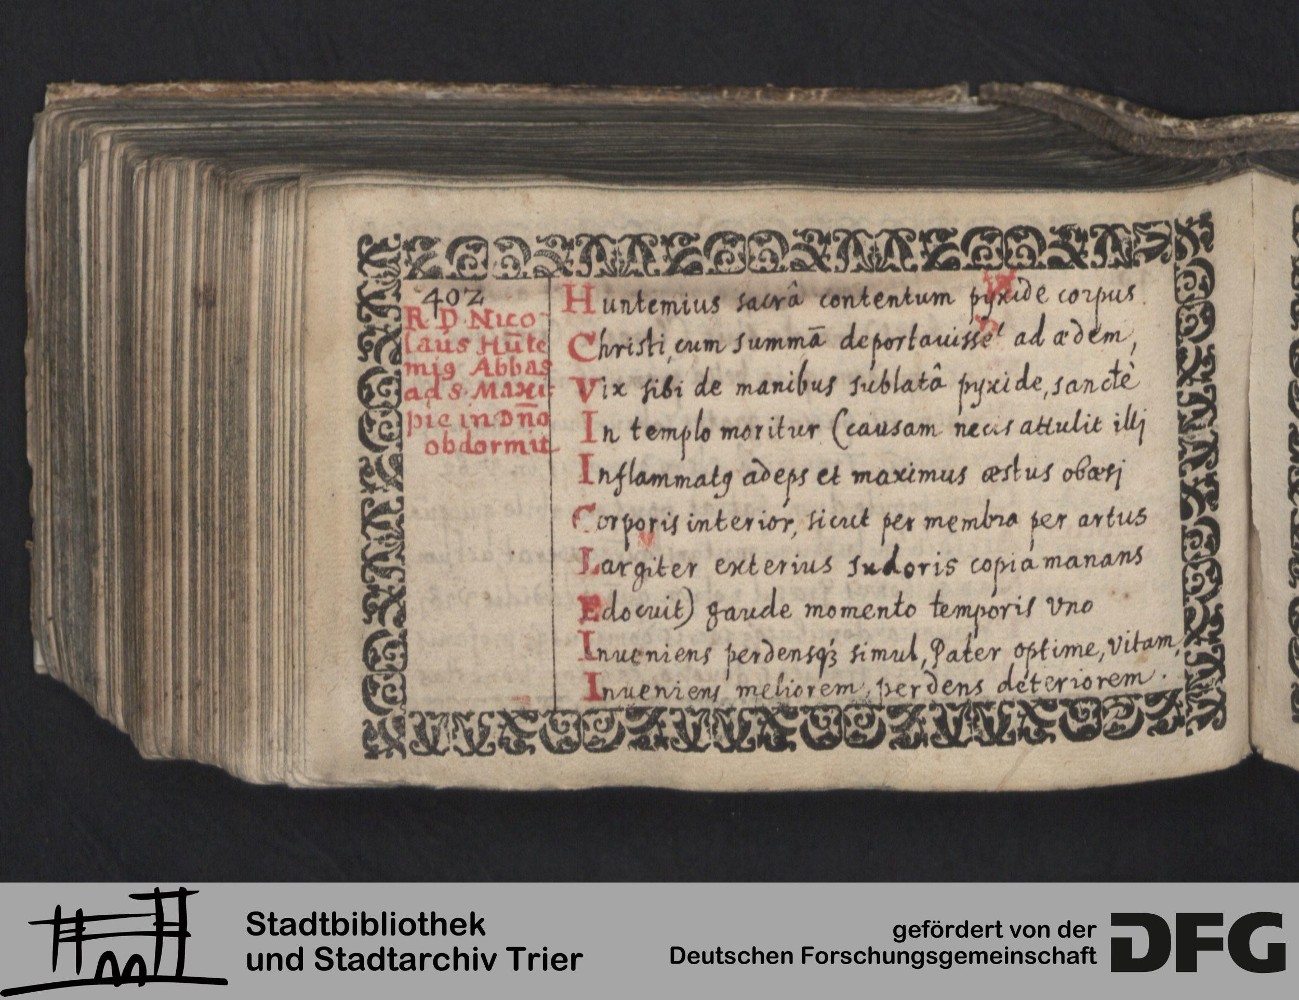 402
R. D. Nico
laus Hūte
mig Abbas
ad S. Maxi
pie in Dño
obdormit
Huntemius sacrâ contentum pyxide corpus
Christi, cum summā deportauisset ad ædem,
Vix sibi de manibus sublatâ pyxide, sanctè
In templo moritur (causam necis attulit illj
Inflammatg adeps et maximus æstus obæsj
Corporis interior, sicut per membra per artus
Largiter exterius sudoris copia manans
Edocuit) gaude momento temporis vno
Inueniens perdensqꝫ simul, Pater optime, vitam,
Inueniens meliorem, perdens deteriorem.
Stadtbibliothek
und Stadtarchiv Trier
gefördert von der
Deutschen Forschungsgemeinschaft
DFG